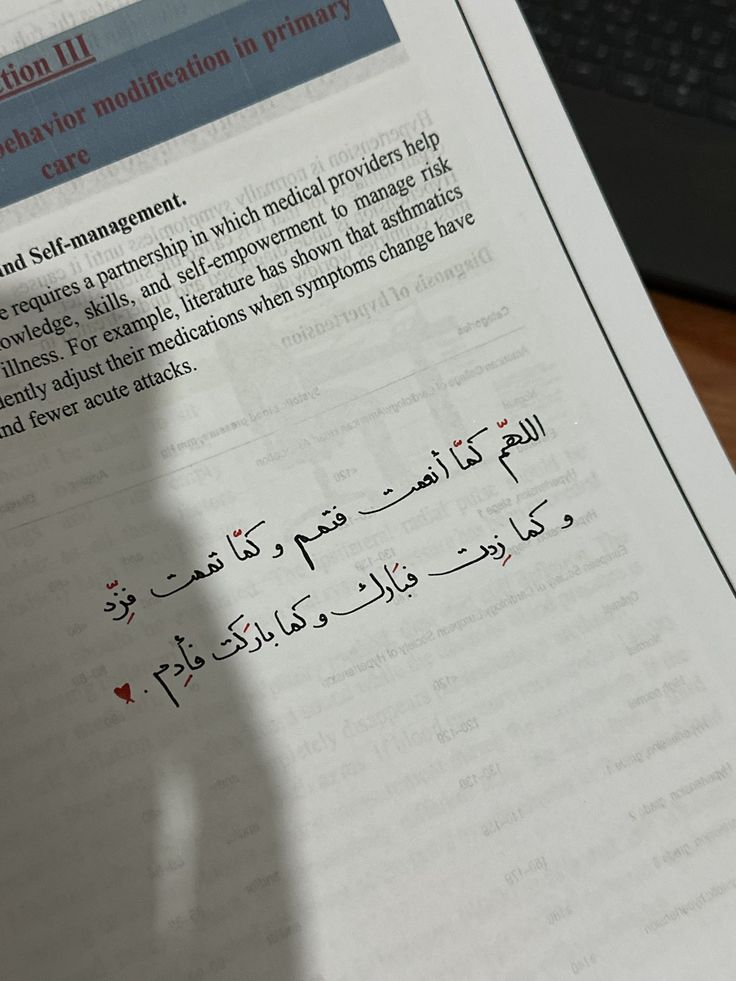 tion III
behavior modification in primary
care
and Self-management.
e requires a partnership in which medical providers help
owledge, skills, and self-empowerment to manage risk
illness. For example, literature has shown that asthmatics
dently adjust their medications when symptoms change have
nd fewer acute attacks.
اللهمّ كمّا أنعمت فتمم و كمّا تممت فزِّد
و كما زِدت فبَارك و كما باركت فأدِم .